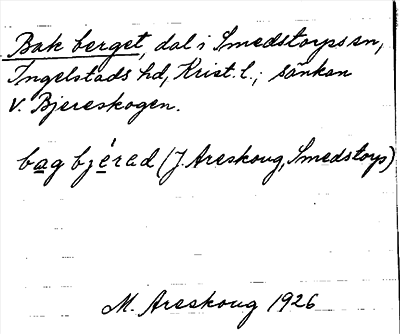 Bak berget, dal i Smedstorps sn,
Ingelstads hd, Krist. l.; sänkan
v. Bjereskogen.
bag bjérad (J. Areskoug, Smedstorp)
M. Areskoug 1926